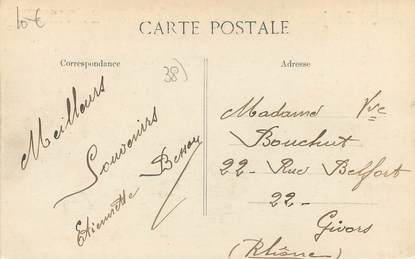 10€
CARTE POSTALE
Correspondance
38)
Adresse
Meilleurs
Souvenirs
Etiennette Besson
Madame Vve
Bouchut
22- Rue Belfort
22-
Givors
(Rhône)